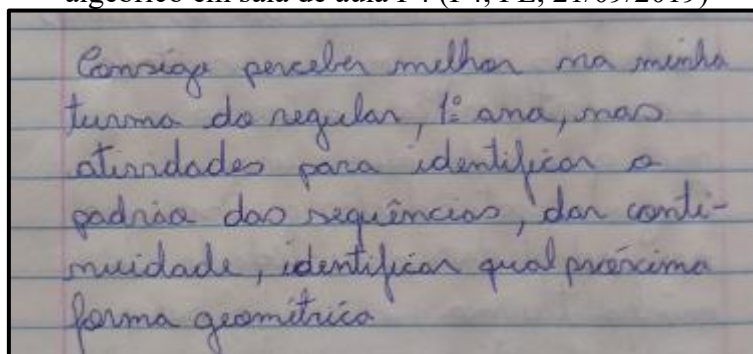 algébrico em sala de aula P4 (P4, PE, 21/09/2019)
Consigo perceber melhor na minha
turma do regular, 1º ano, nas
atividades para identificar o
padrão das sequências, dar conti-
nuidade, identificar qual próxima
forma geométrica